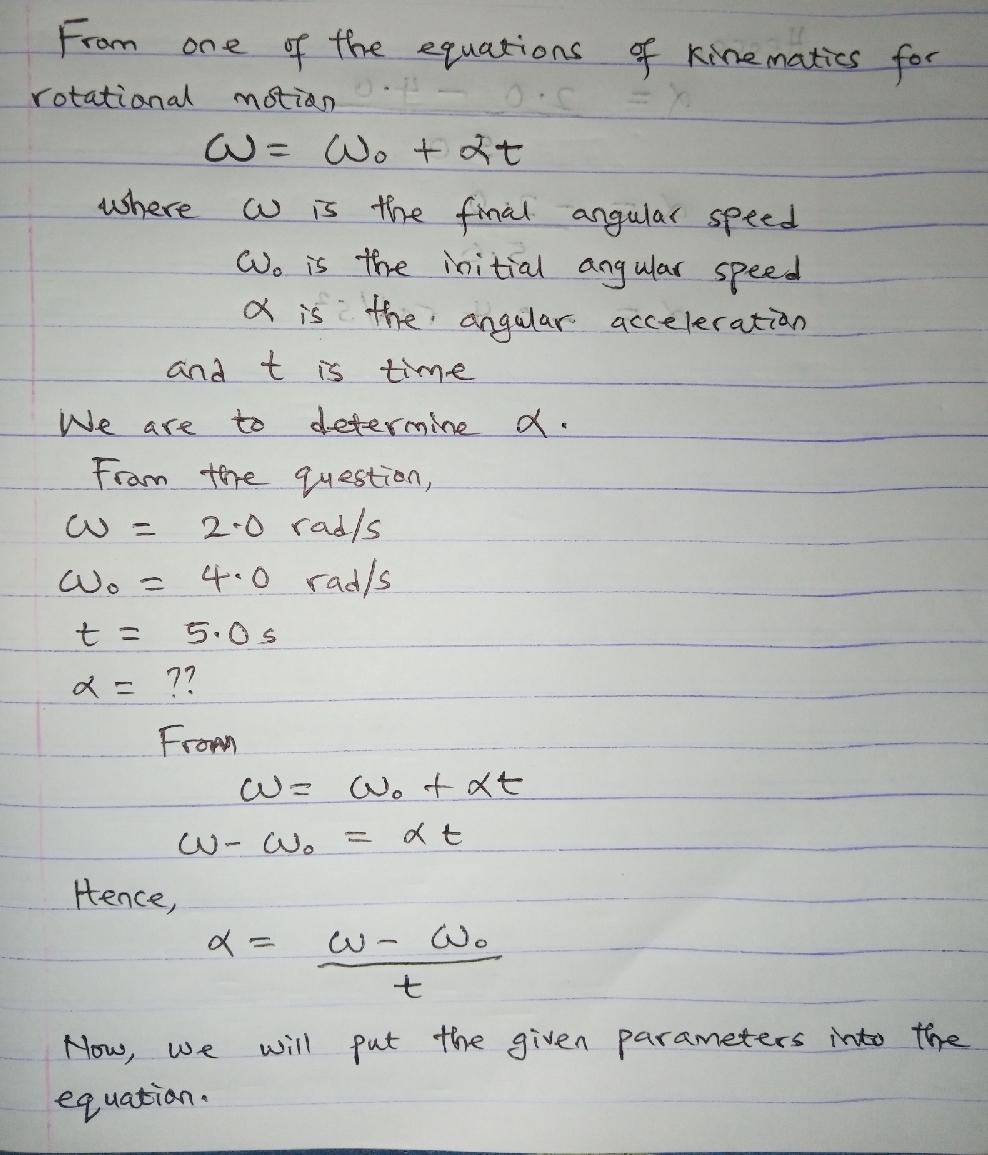 From one of the equations of kinematics for
rotational motion
ω = ω₀ + αt
where ω is the final angular speed
ω₀ is the initial angular speed
α is the angular acceleration
and t is time
We are to determine α.
From the question,
ω = 2.0 rad/s
ω₀ = 4.0 rad/s
t = 5.0 s
α = ??
From
ω = ω₀ + αt
ω - ω₀ = αt
Hence,
α = ω - ω₀
t
Now, we will put the given parameters into the
equation.